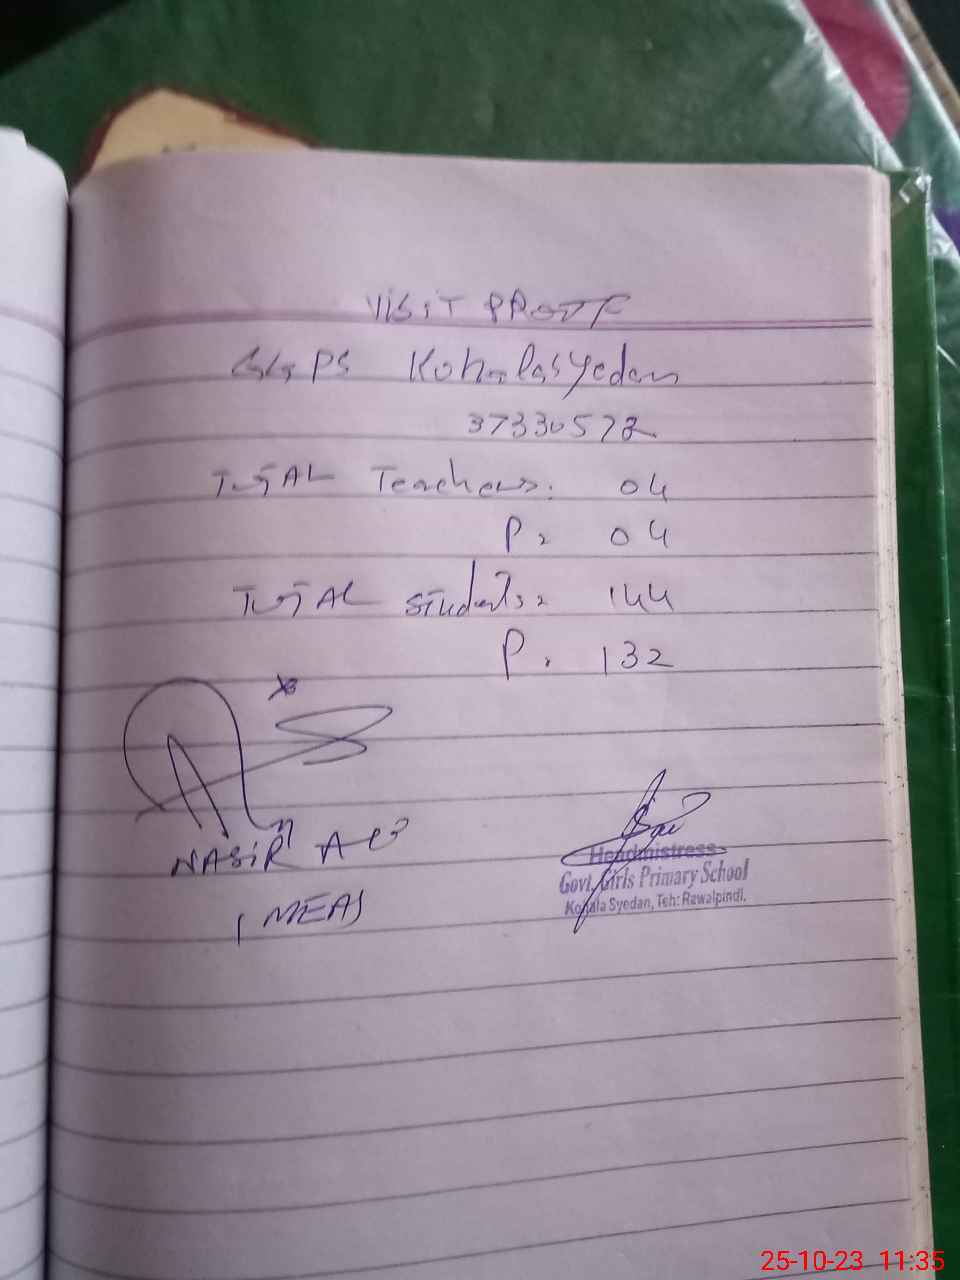 VISIT PROOF
GGPS Kohalasyedan
37330572
TOTAL Teachers: 04
P. 04
TOTAL Students. 144
P. 132
NASIR ALI
MEAS
Headmistress
Govt. Girls Primary School
Kohala Syedan, Teh: Rawalpindi.
25-10-23 11:35